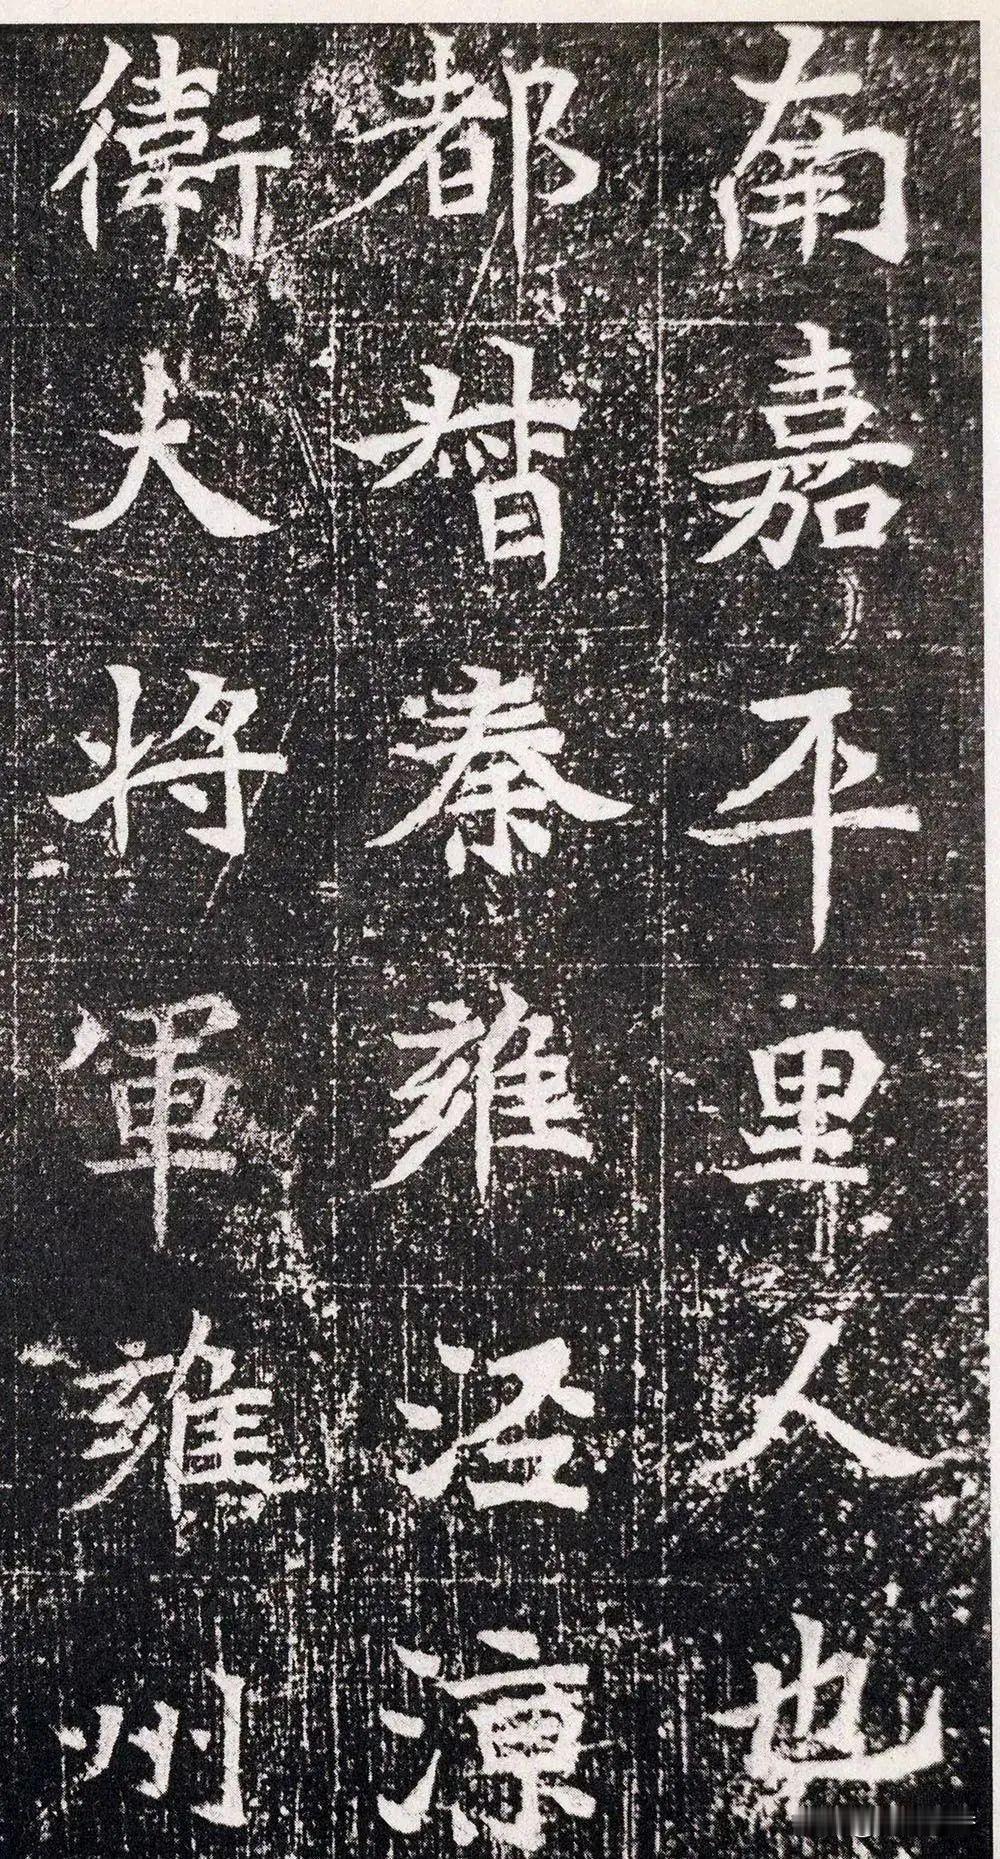 南嘉平里人也
都督秦雍泾涼
衛大将軍雍州